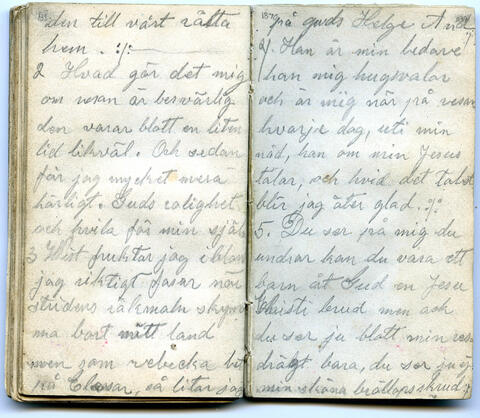 den till vårt rätta
hem. :/:
2 Hvad gör det mig
om resan är besvärlig
den varar blott en liten
tid likväl. Och sedan
får jag mycket mera
härligt. Guds salighet
och hvila för min själ
3 Wist fruktar jag ibland
jag riktigt fasar när
stridens räkmaln skym
ma bort mitt land
men som rebecka
på Eleasar, så litar jag
på guds Helge And
4. Han är min ledare
han mig hugsvalar
och är mig när på resan
hvarje dag, uti min
nöd, han om min Jesus
talar, och hvid det talet
blir jag åter glad. :/:
5. Du ser på mig du
undrar kan du vara ett
barn åt Gud en Jesu
Christi brud men ack
du ser ju blott min res
drägt bara, du ser ju ej
min sköna bröllopsskrud